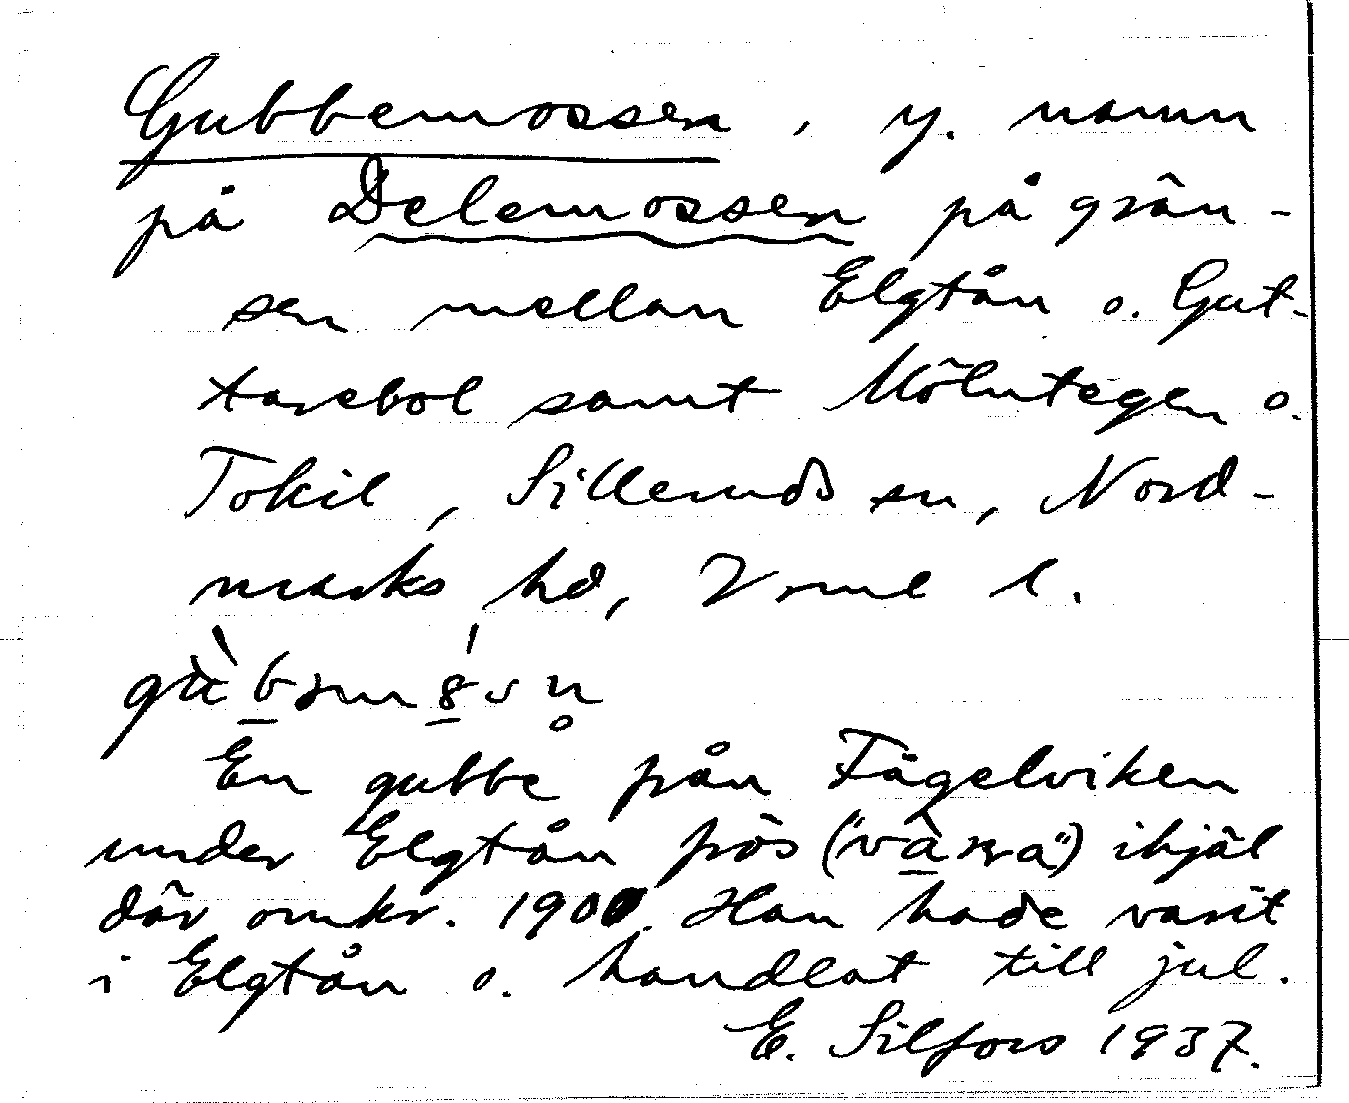 Gubbemossen, y. namn
på Delemossen på grän-
sen mellan Elgtån o. Gut-
tarebol samt Mölntegen o.
Tokil, Sillerruds sn, Nord-
marks hd, Vrml l.
En gubbe från Fågelviken
under Elgtån frös ihjäl
där omkr. 1900. Han hade varit
i Elgtån o. handlat till jul.
E. Silfors 1937.